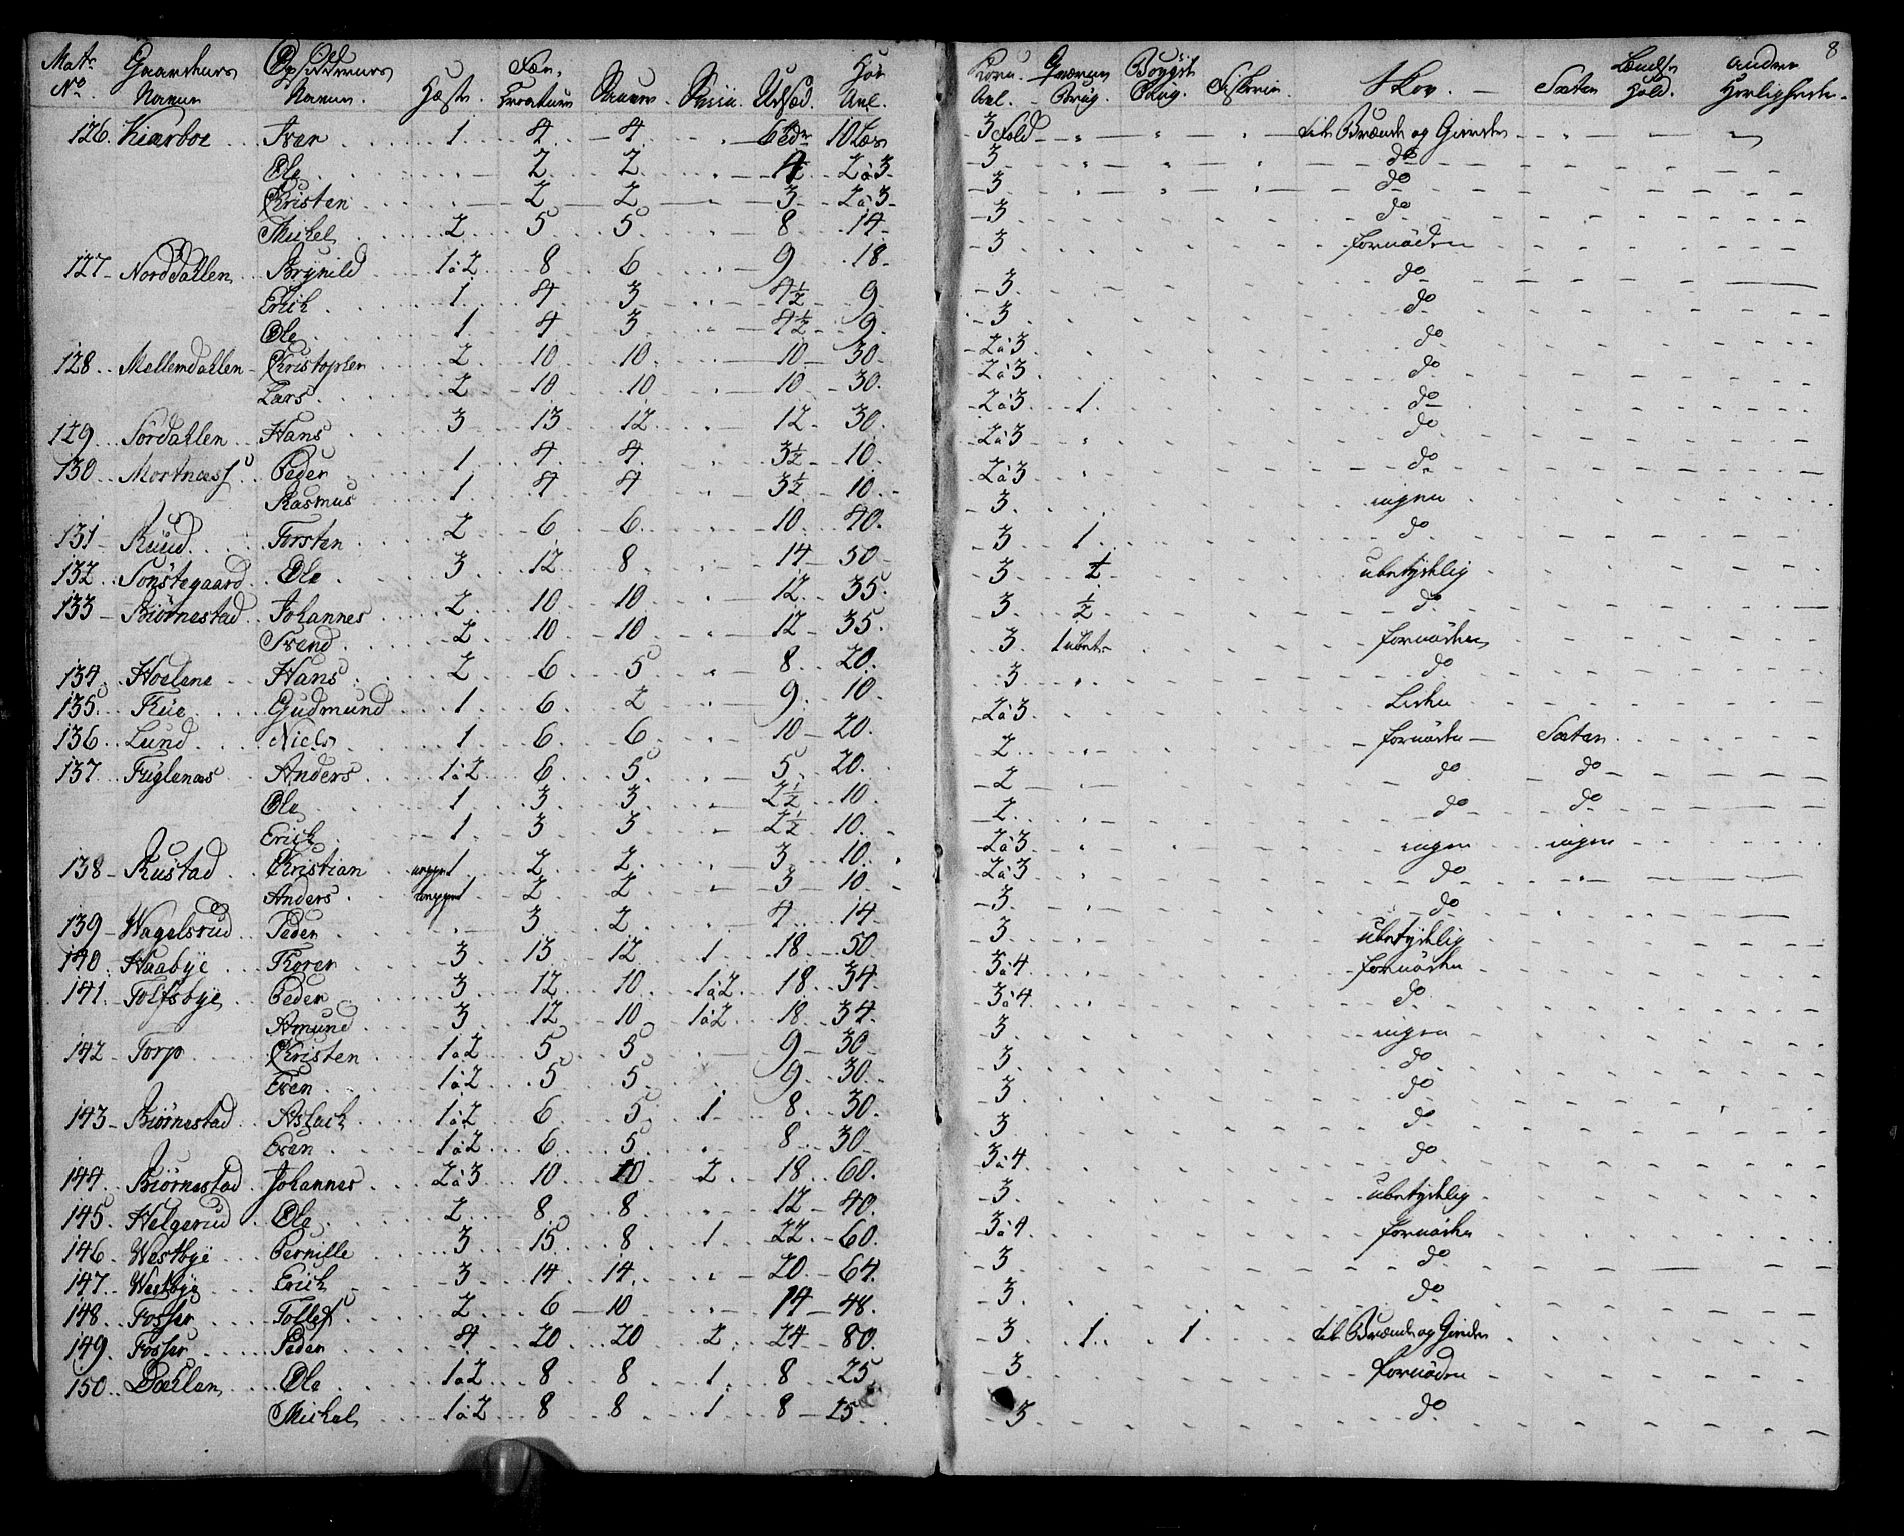 8
Matr No Gaardenes Navne Opsiddernes Navne. Hæste. Fæe Creature Sauer. Sviin. Udsæd. Høe Aul. Korn Aul. Qværne Brug. Bøygst Saug. Fiskerie. Skov. Sæter Lændst Hold. Andre Herligheder
126. Kiærboe Iver 1 4 4 6 Tdr 10 Læs 3 Fold til Brænde og Gierder
Ole 2 2 4½ 2 à 3 3 do
Kristen 2 2 3 2 à 3 3 do
Michel 2 5 5 8 14 3 do
127 Norddahlen Brynild 1 à 2 8 6 9 18 3 fornøden
Erich 1 4 3 4½ 9 3 do
Ole 1 4 3 4½ 9 3 do
128 Mellemdahlen Kristopher 2 10 10 10 30 2 à 3 do
Lars 2 10 10 10 30 2 à 3 do
129 Sørdahlen Hans 3 13 12 12 30 2 à 3 1 do
130 Mortnæss Peder 1 4 4 3½ 10 2 à 3 do
Rasmus 1 4 4 3½ 10 2 à 3 do
131 Ruud Torsten 2 6 6 10 40 3 ingen
132 Sønstegaard Ole 3 12 8 14 50 3 1 do
133 Biørnestad Johannes 2 10 10 12 35 3 ½ ubetydelig
Trond 2 10 10 12 35 3 ½ do
134 Hoelene Hans 2 6 5 8 20 3 1 ubet. fornøden
135 Tue Gudmund 1 6 2 9 10 3 do
136 Lund Niels 1 6 6 10 20 2 à 3 Lidен
137 Fuglenæs Anders 1 à 2 6 5 5 20 2 fornøden Sæter
Ole 1 3 3 2½ 10 2 do do
Erich 1 3 3 2½ 10 2 do do
138 Rustad Kristian neppe 1 2 2 3 10 2 à 3 ingen ingen
Anders neppe 1 2 2 3 10 2 à 3 do
139 Wagelsrud Peder 3 2 4 14 3 do
140 Haabye Thorer 3 13 12 1 18 50 3 ubetydelig
141 Tolfsbye Peder 3 12 10 1 à 2 18 34 3 à 4 fornøden
Amund 3 12 10 1 à 2 18 34 3 à 4 do
142 Torp Kristen 1 à 2 5 5 9 30 3 ingen
Even 1 à 2 5 5 9 30 3 do
143 Biørnestad Aslach 1 à 2 6 5 1 8 30 3 do
Even 1 à 2 6 5 8 30 3 do
144 Biørnestad Johannes 2 à 3 10 10 2 18 60 3 à 4 do
145 Helgerud Ole 2 8 8 12 40 3 ubetydelig
146 Westbye Pernille 3 15 8 1 22 60 3 à 4 fornøden
147 Westbye Erich 3 14 14 20 64 3 do
148 Fosser Tollef 2 6 10 14 48 3 do
149 Fosser Peder 4 20 20 2 24 80 3 1 1 til Brænde og Gierder
150 Dælen Ole 1 à 2 8 8 1 8 25 3 fornøden
Michel 1 à 2 8 8 1 8 25 3 do